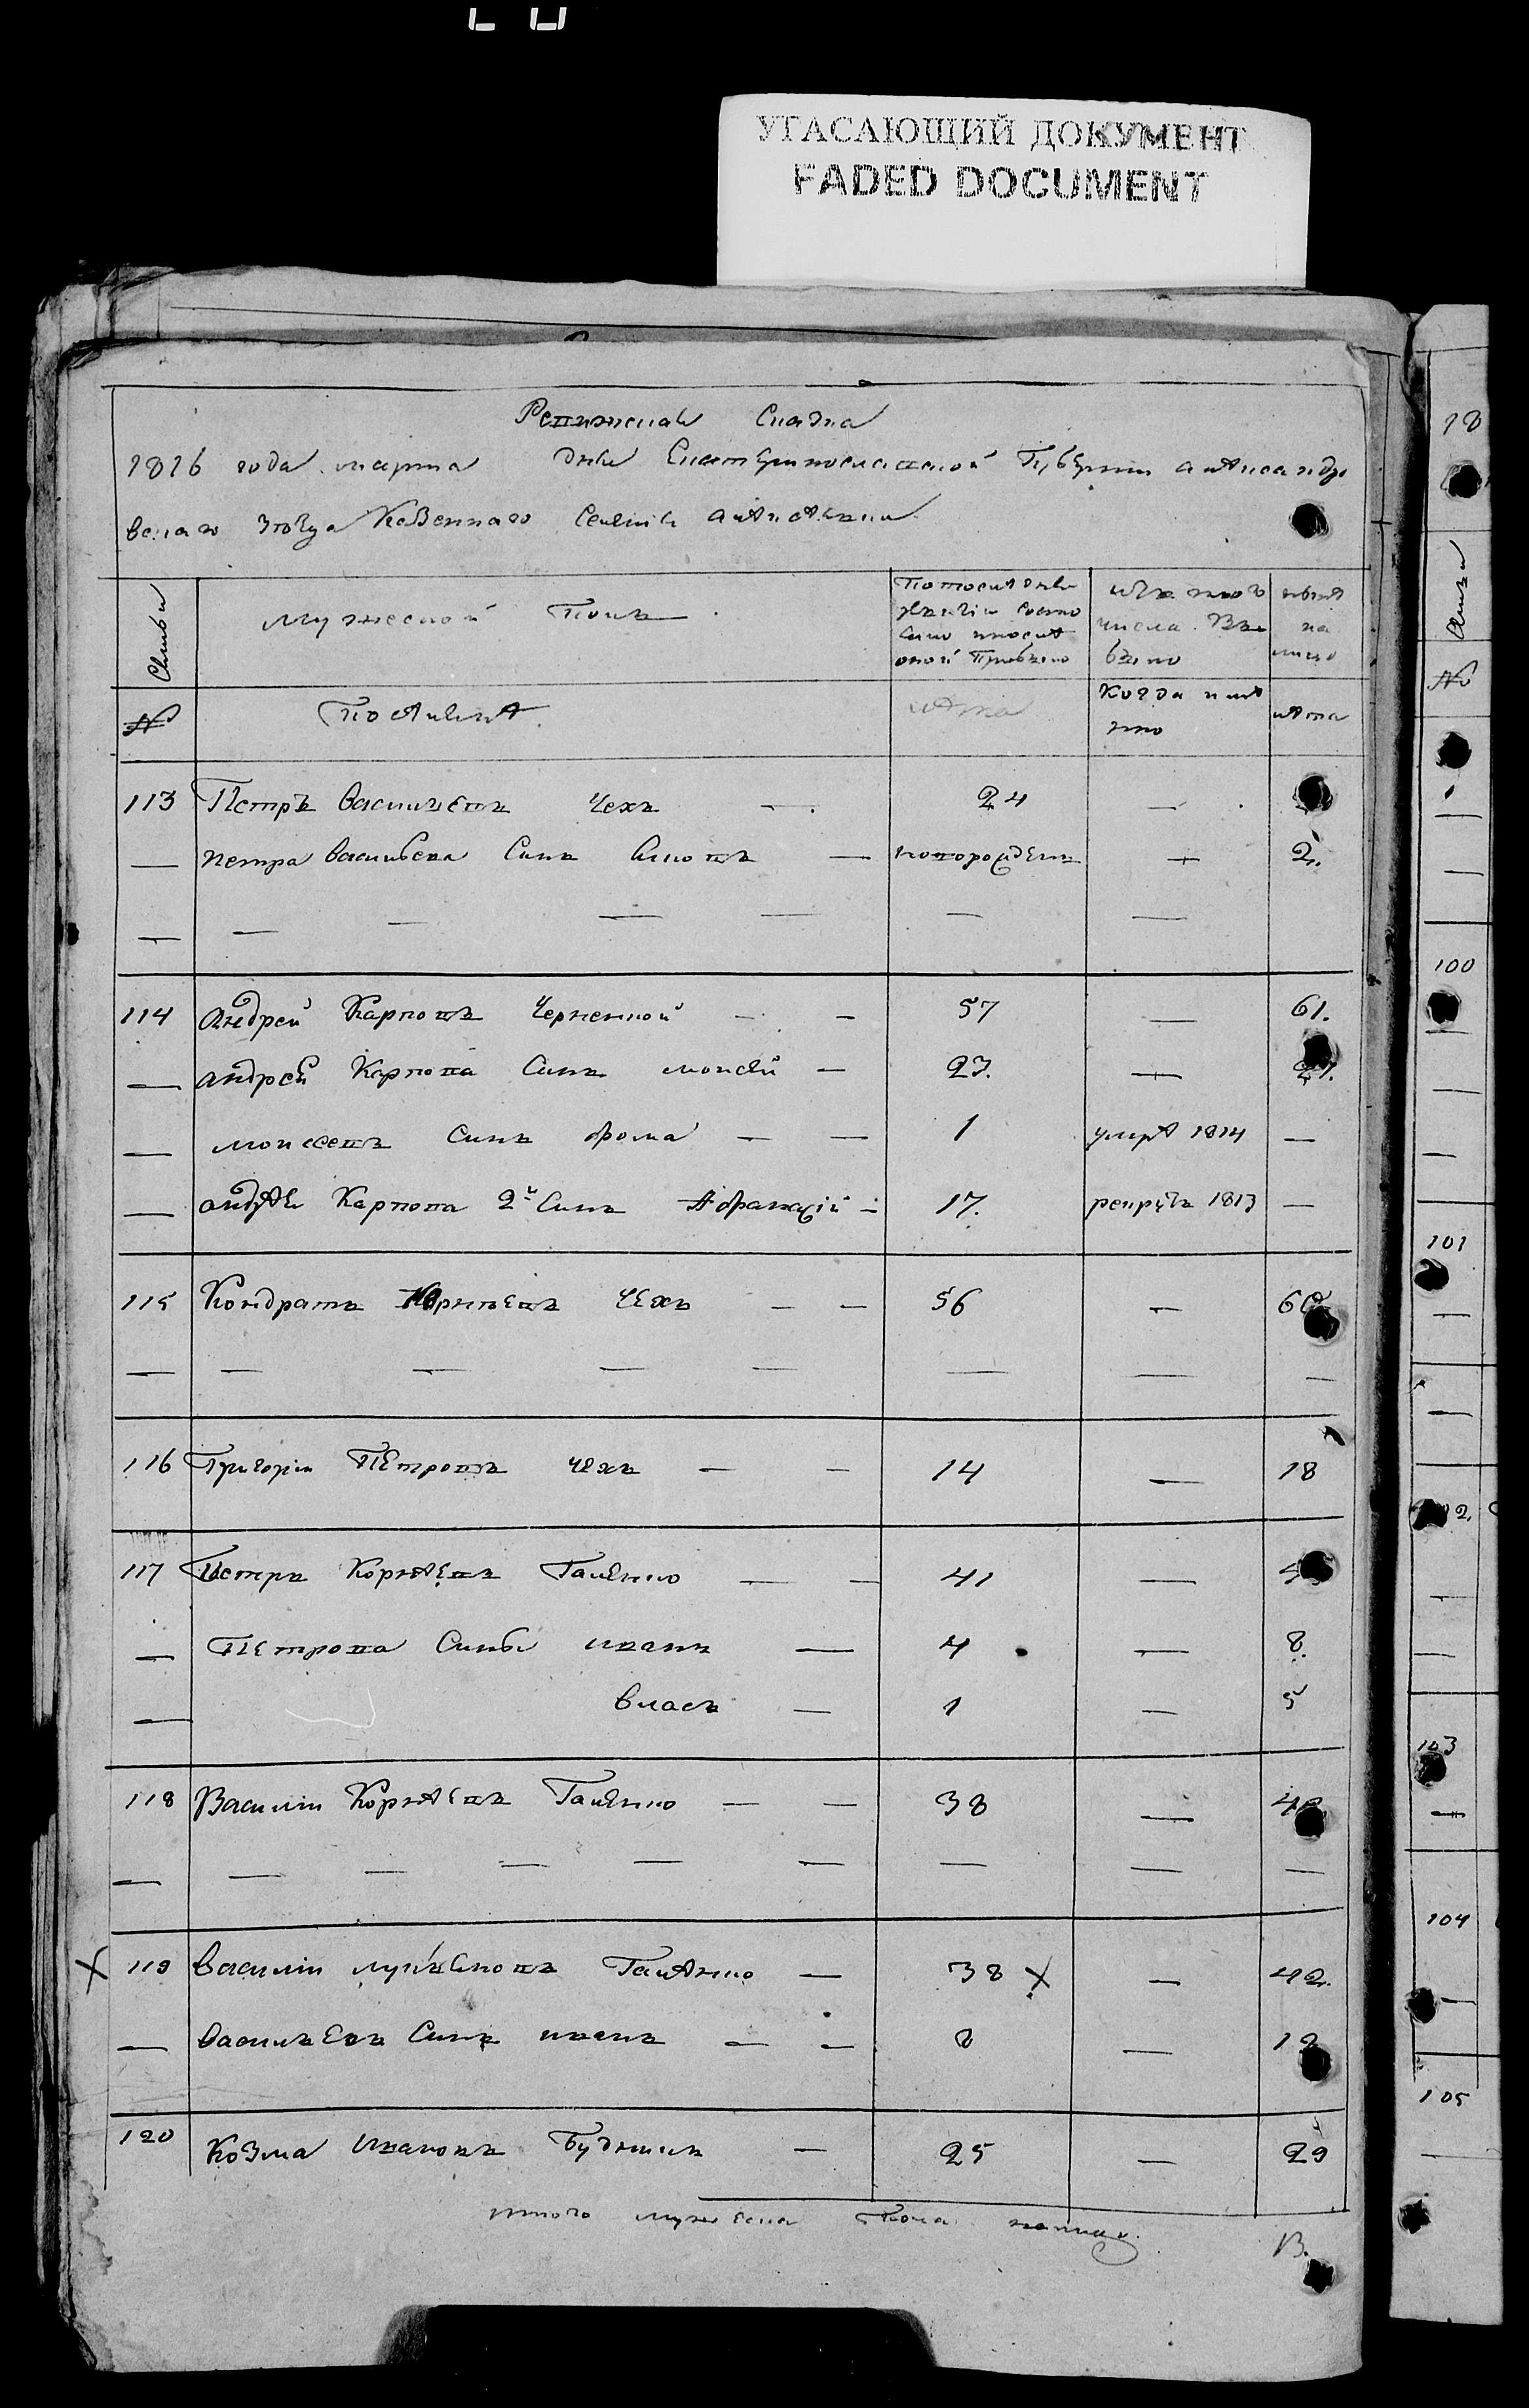 УГАСАЮЩИЙ ДОКУМЕНТ
FADED DOCUMENT
Ревижская Сказка
1816 года марта дня Екатеринославской Губернии александро
вскаго уезда Казеннаго Селения
Семьи
мужеской Полъ
По последней ревизии состо
яло и после
оной Прибыло
изъ того
числа Вы
было
ныне
на
лицо
№
Поселяне
лета
Когда имян
но
лета
113 Петръ васильевъ Чехъ — 24 —
— петра васильева Синъ — новорожденъ — 2.
— — — — — — —
114 Андрей Карповъ Черненкой — — 57 — 61.
— андрей Карпова Синъ моисей — 23. — 27.
— моисеевъ Синъ фома — — 1 умре 1814 —
— андрея Карпова 2й Синъ Афанасій — 17. рекрутъ 1813 —
115 Кондратъ Корнеевъ Чехъ — — 56 — 60
— — — — — — — —
116 Григорій Петровъ чехъ — — 14 — 18
117 Петръ Корнеевъ Галенко — — 41 — 45
— Петрова Сины иванъ — 4 — 8.
— власъ — 1 — 5
118 Василій Корнеевъ Галенко — — 38 — 42
— — — — — — — — —
X 119 василій лукьяновъ Галенко — 38 X — 42.
— васильевъ Синъ иванъ — — 8 — 12
120 Козма Ивановъ Будникъ — 25 — 29
итого мужеска Пола налицо 13.
18
Семьи
№
100
101
102.
103
104
105